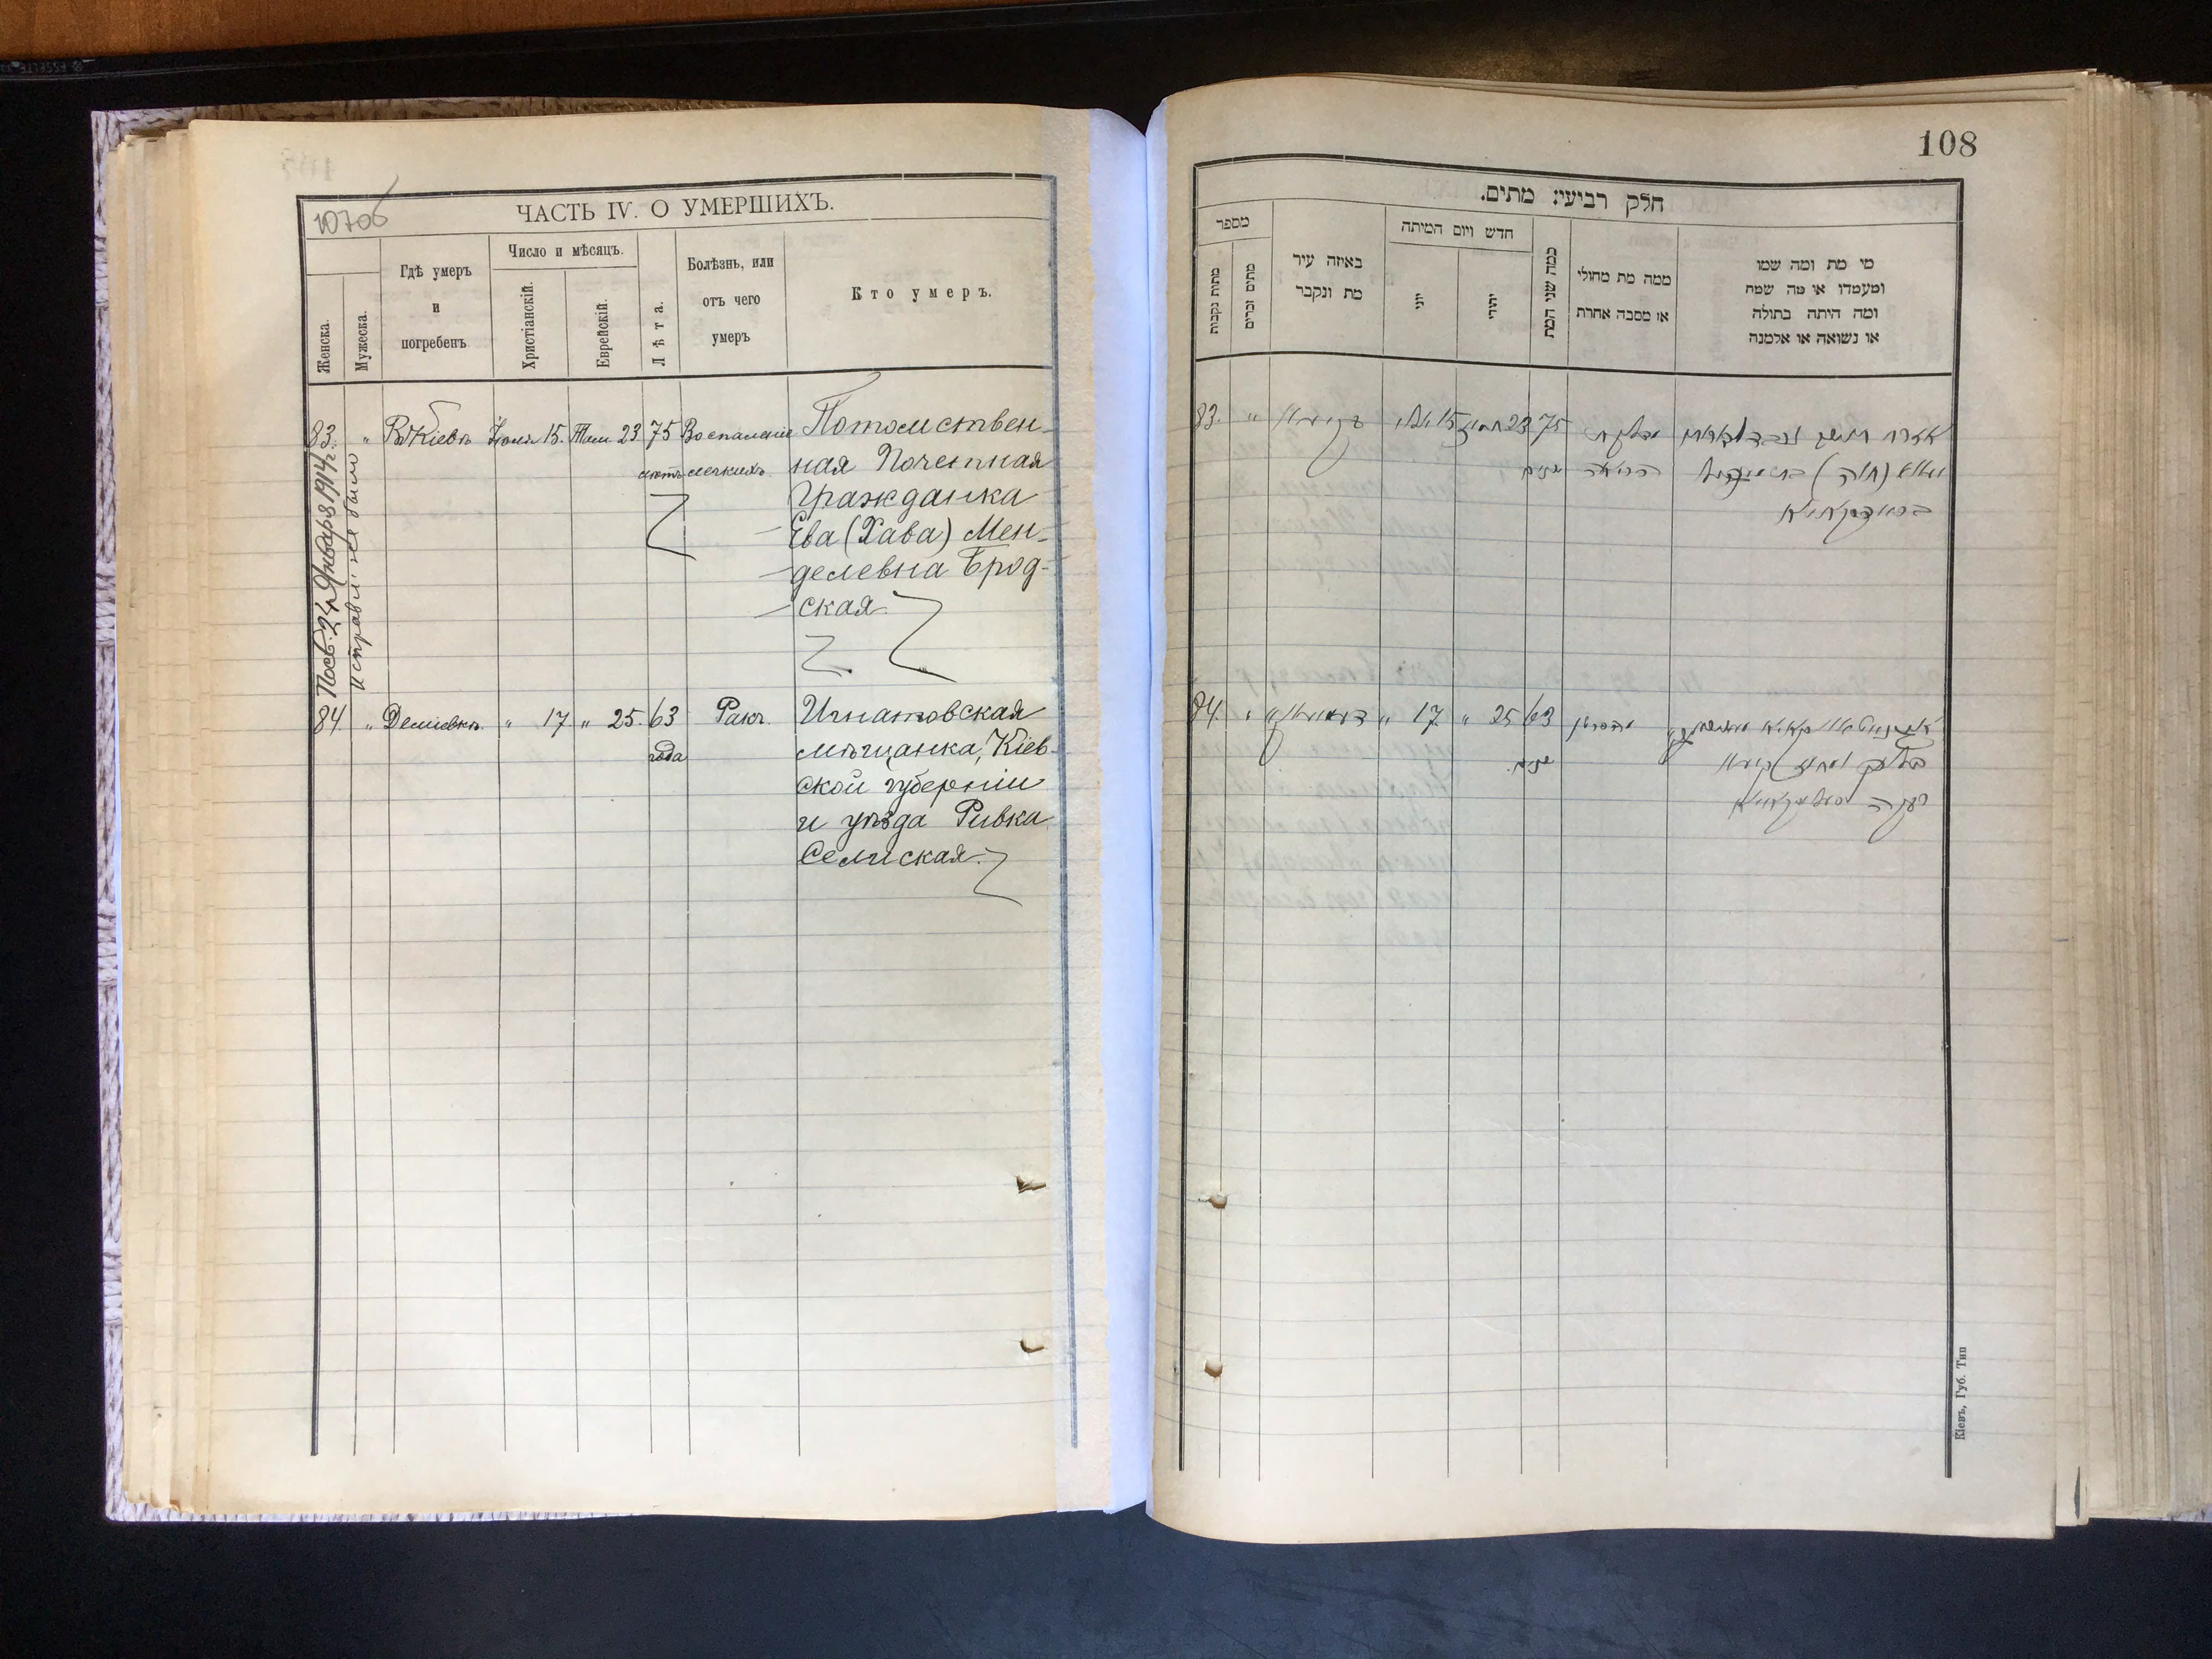 10706
ЧАСТЬ IV. О УМЕРШИХЪ.
Женска.
Мужеска.
Гдѣ умеръ
и
погребенъ
Число и мѣсяцъ.
Христіанскій.
Еврейскій.
Лѣта.
Болѣзнь, или
отъ чего
умеръ
Кто умеръ.
83. " Въ Кіевѣ Іюля 15. Там 23 75 Воспаленіе Потомствен-
лѣтъ легкихъ ная Почетная
Гражданка
Ева (Хава) Мен-
делевна Брод-
ская
24 Января 1914 г.
исправл. не было
84. " Деміевкѣ " 17. " 25. 63 Ракъ. Игнатовская
года мѣщанка, Кіев-
ской губерніи
и уѣзда Ривка
Селиская
108
חלק רביעי: מתים.
מספר
מתות נקבות
מתים זכרים
באיזה עיר
מת ונקבר
חדש ויום המיתה
יוני
יהודי
כמה שני המת
ממה מת מחולי
או מסבה אחרת
מי מת ומה שמו
ומעמדו או מה שמה
ומה היתה בתולה
או נשואה או אלמנה
83. " 15 יולי 23 תמוז 75
שנים הריאה (חוה)
בראדסקאיא
84. " " 17 " 25 63
שנים
Кіевъ, Губ. Тип